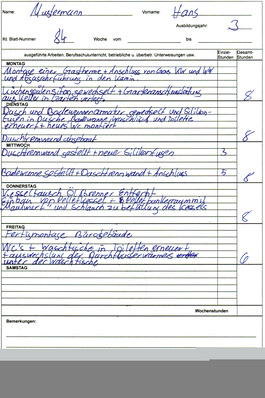 Name: Mustermann Vorname: Hans
Ausbildungsjahr: 3
Rt. Blatt-Nummer 84 Woche vom bis
ausgeführte Arbeiten, Berufsschulunterricht, betriebliche u. überbetr. Unterweisungen usw. Einzel-Stunden Gesamt-Stunden
MONTAG
Montage einer Gastherme + Anschluss von Gas KW und WW
und Abgasrohrführung in den Kamin. 8
Küchenspülensifon gewechselt + Gartenanschlussleitung
aus Keller in Garten verlegt
DIENSTAG
Dusch und Badewannenarmatur gewechselt und Silikon-
fugen in Dusche, Badewanne, und Toilette
erneuert + neues WC montiert 8
Duschtrennwand
MITTWOCH
Duschtrennwand gestellt + neue Silikonfugen 3
Badewanne gestellt + Duschtrennwand + Anschluss 5 8
DONNERSTAG
Kesseltausch Ölbrenner entfernt
Einbau von Pelletkessel + Pelletbunkerraum mit
und Schlauch zu befüllung des Kessels 8
FREITAG
Fertigmontage Bürogebäude
WC's + Waschtische in Toiletten erneuert,
auswechslung der Durchlauferwärmer
unter der Waschtische 6
SAMSTAG
Wochenstunden
Bemerkungen: